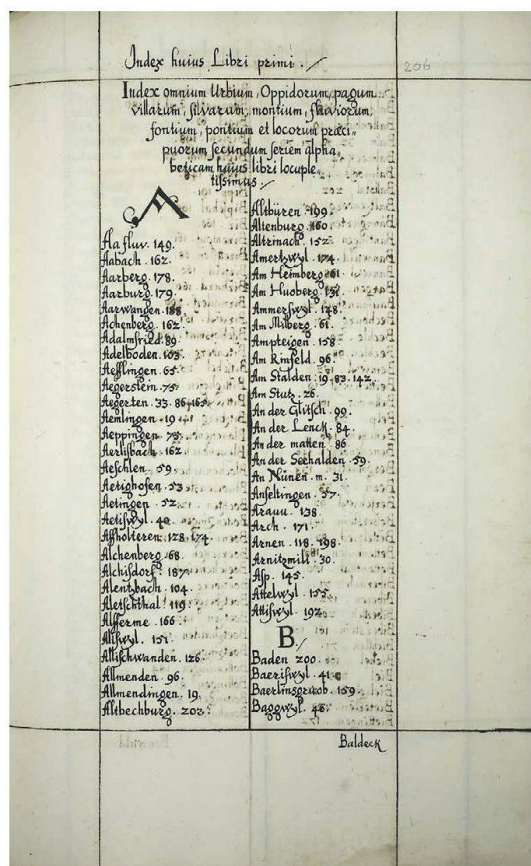 Index huius Libri primi.
206
Index omnium Urbium, Oppidorum, pagum
villarum, silvarum, montium, fluviorum,
fontium, pontium et locorum præci-
puorum secundum seriem alpha-
beticam huius libri locuple-
tissimus.
A
Aa fluv. 149.
Aabach. 162.
Aarberg. 178.
Aarburg. 179.
Aarwangen. 188
Achenberg. 162
Adalmsried. 89.
Adelboden. 103.
Aefflingen. 65.
Aegerstein. 75.
Aegerten. 33. 86. 165.
Aemlingen. 19.
Aeppingen. 75.
Aerlisbach. 162
Aeschlen. 59.
Aetighofen. 53
Aetingen. 52
Aetiswyl. 40
Affholteren. 128. 174
Alchenberg. 68.
Alchisdorf. 187.
Alentzbach. 104.
Aletschthal. 119.
Alfferme. 166.
Aliswyl. 151.
Allischwanden. 126.
Allmenden. 96.
Allmendingen. 19.
Altbechburg. 202.
Altbüren. 199.
Altenburg. 160.
Altzinach. 152.
Amertzwyl. 174.
Am Heimberg. 61.
Am Huoberg. 131.
Ammerswyl. 148.
Am Milberg. 61.
Ampteigen. 158
Am Rinfeld. 96.
Am Stalden. 19. 83. 142.
Am Stutz. 26.
An der Glütsch. 99.
An der Lenck. 84.
An der matten. 86
An der Seehalden. 59.
An Nünen. m. 31.
Anseltingen. 37.
Arauu. 138.
Arch. 171.
Arnen. 118. 198.
Arnitzmill. 30.
Asp. 145.
Attelwyl. 155.
Attiswyl. 192.
B.
Baden. 200.
Baeriswyl. 41.
Baerlinsgraob. 159.
Baggwyl. 46.
Baldeck